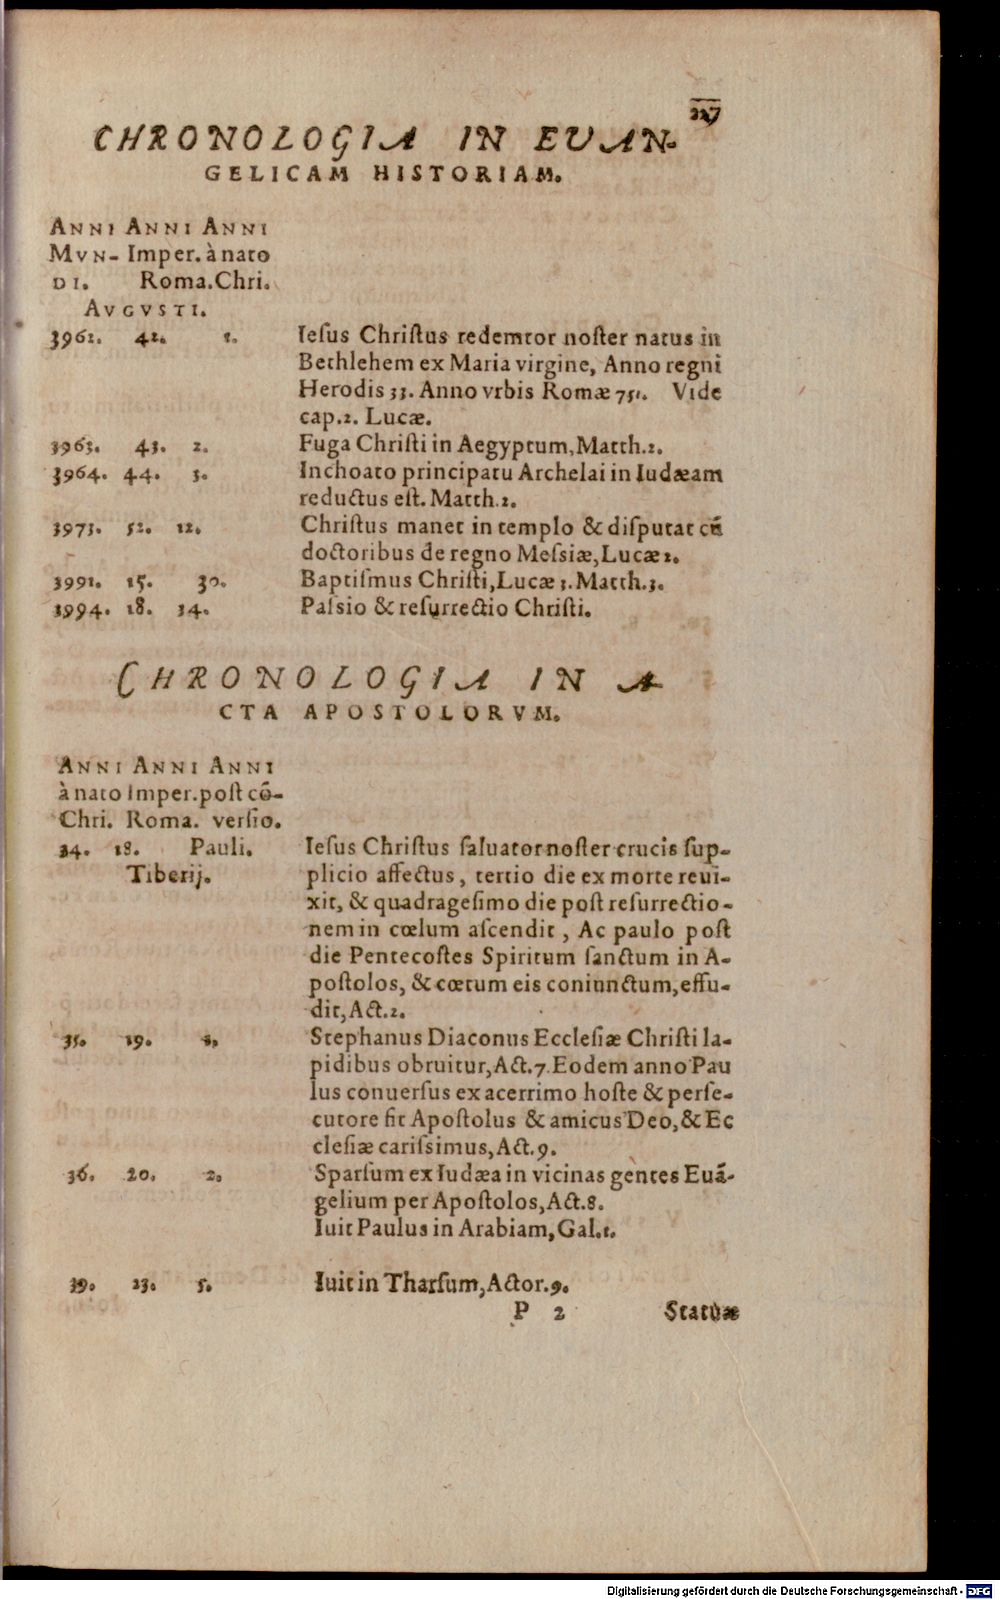 227
CHRONOLOGIA IN EUAN-
GELICAM HISTORIAM.
ANNI ANNI ANNI
MVN- Imper. à nato
DI. Roma. Chri.
AVGVSTI.
3962. 42. 1. Iesus Christus redemtor noster natus in
Bethlehem ex Maria virgine, Anno regni
Herodis 33. Anno vrbis Romæ 751. Vide
cap. 2. Lucæ.
3963. 43. 2. Fuga Christi in Aegyptum, Matth. 2.
3964. 44. 3. Inchoato principatu Archelai in Iudæam
reductus est. Matth. 2.
3973. 52. 12. Christus manet in templo & disputat cū
doctoribus de regno Messiæ, Lucæ 2.
3991. 15. 30. Baptismus Christi, Lucæ 3. Matth. 3.
3994. 18. 34. Passio & resurrectio Christi.
CHRONOLOGIA IN A
CTA APOSTOLORVM.
ANNI ANNI ANNI
à nato Imper. post cō-
Chri. Roma. versio.
34. 18. Pauli. Iesus Christus saluator noster crucis sup-
Tiberij. plicio affectus, tertio die ex morte reui-
xit, & quadragesimo die post resurrectio-
nem in cœlum ascendit, Ac paulo post
die Pentecostes Spiritum sanctum in A-
postolos, & cœtum eis coniunctum, effu-
dit, Act. 2.
35. 19. 1. Stephanus Diaconus Ecclesiæ Christi la-
pidibus obruitur, Act. 7. Eodem anno Pau
lus conuersus ex acerrimo hoste & perse-
cutore fit Apostolus & amicus Deo, & Ec
clesiæ carissimus, Act. 9.
36. 20. 2. Sparsum ex Iudæa in vicinas gentes Euā-
gelium per Apostolos, Act. 8.
Iuit Paulus in Arabiam, Gal. 1.
39. 23. 5. Iuit in Tharsum, Actor. 9.
P 2 Statuæ
Digitalisierung gefördert durch die Deutsche Forschungsgemeinschaft - DFG